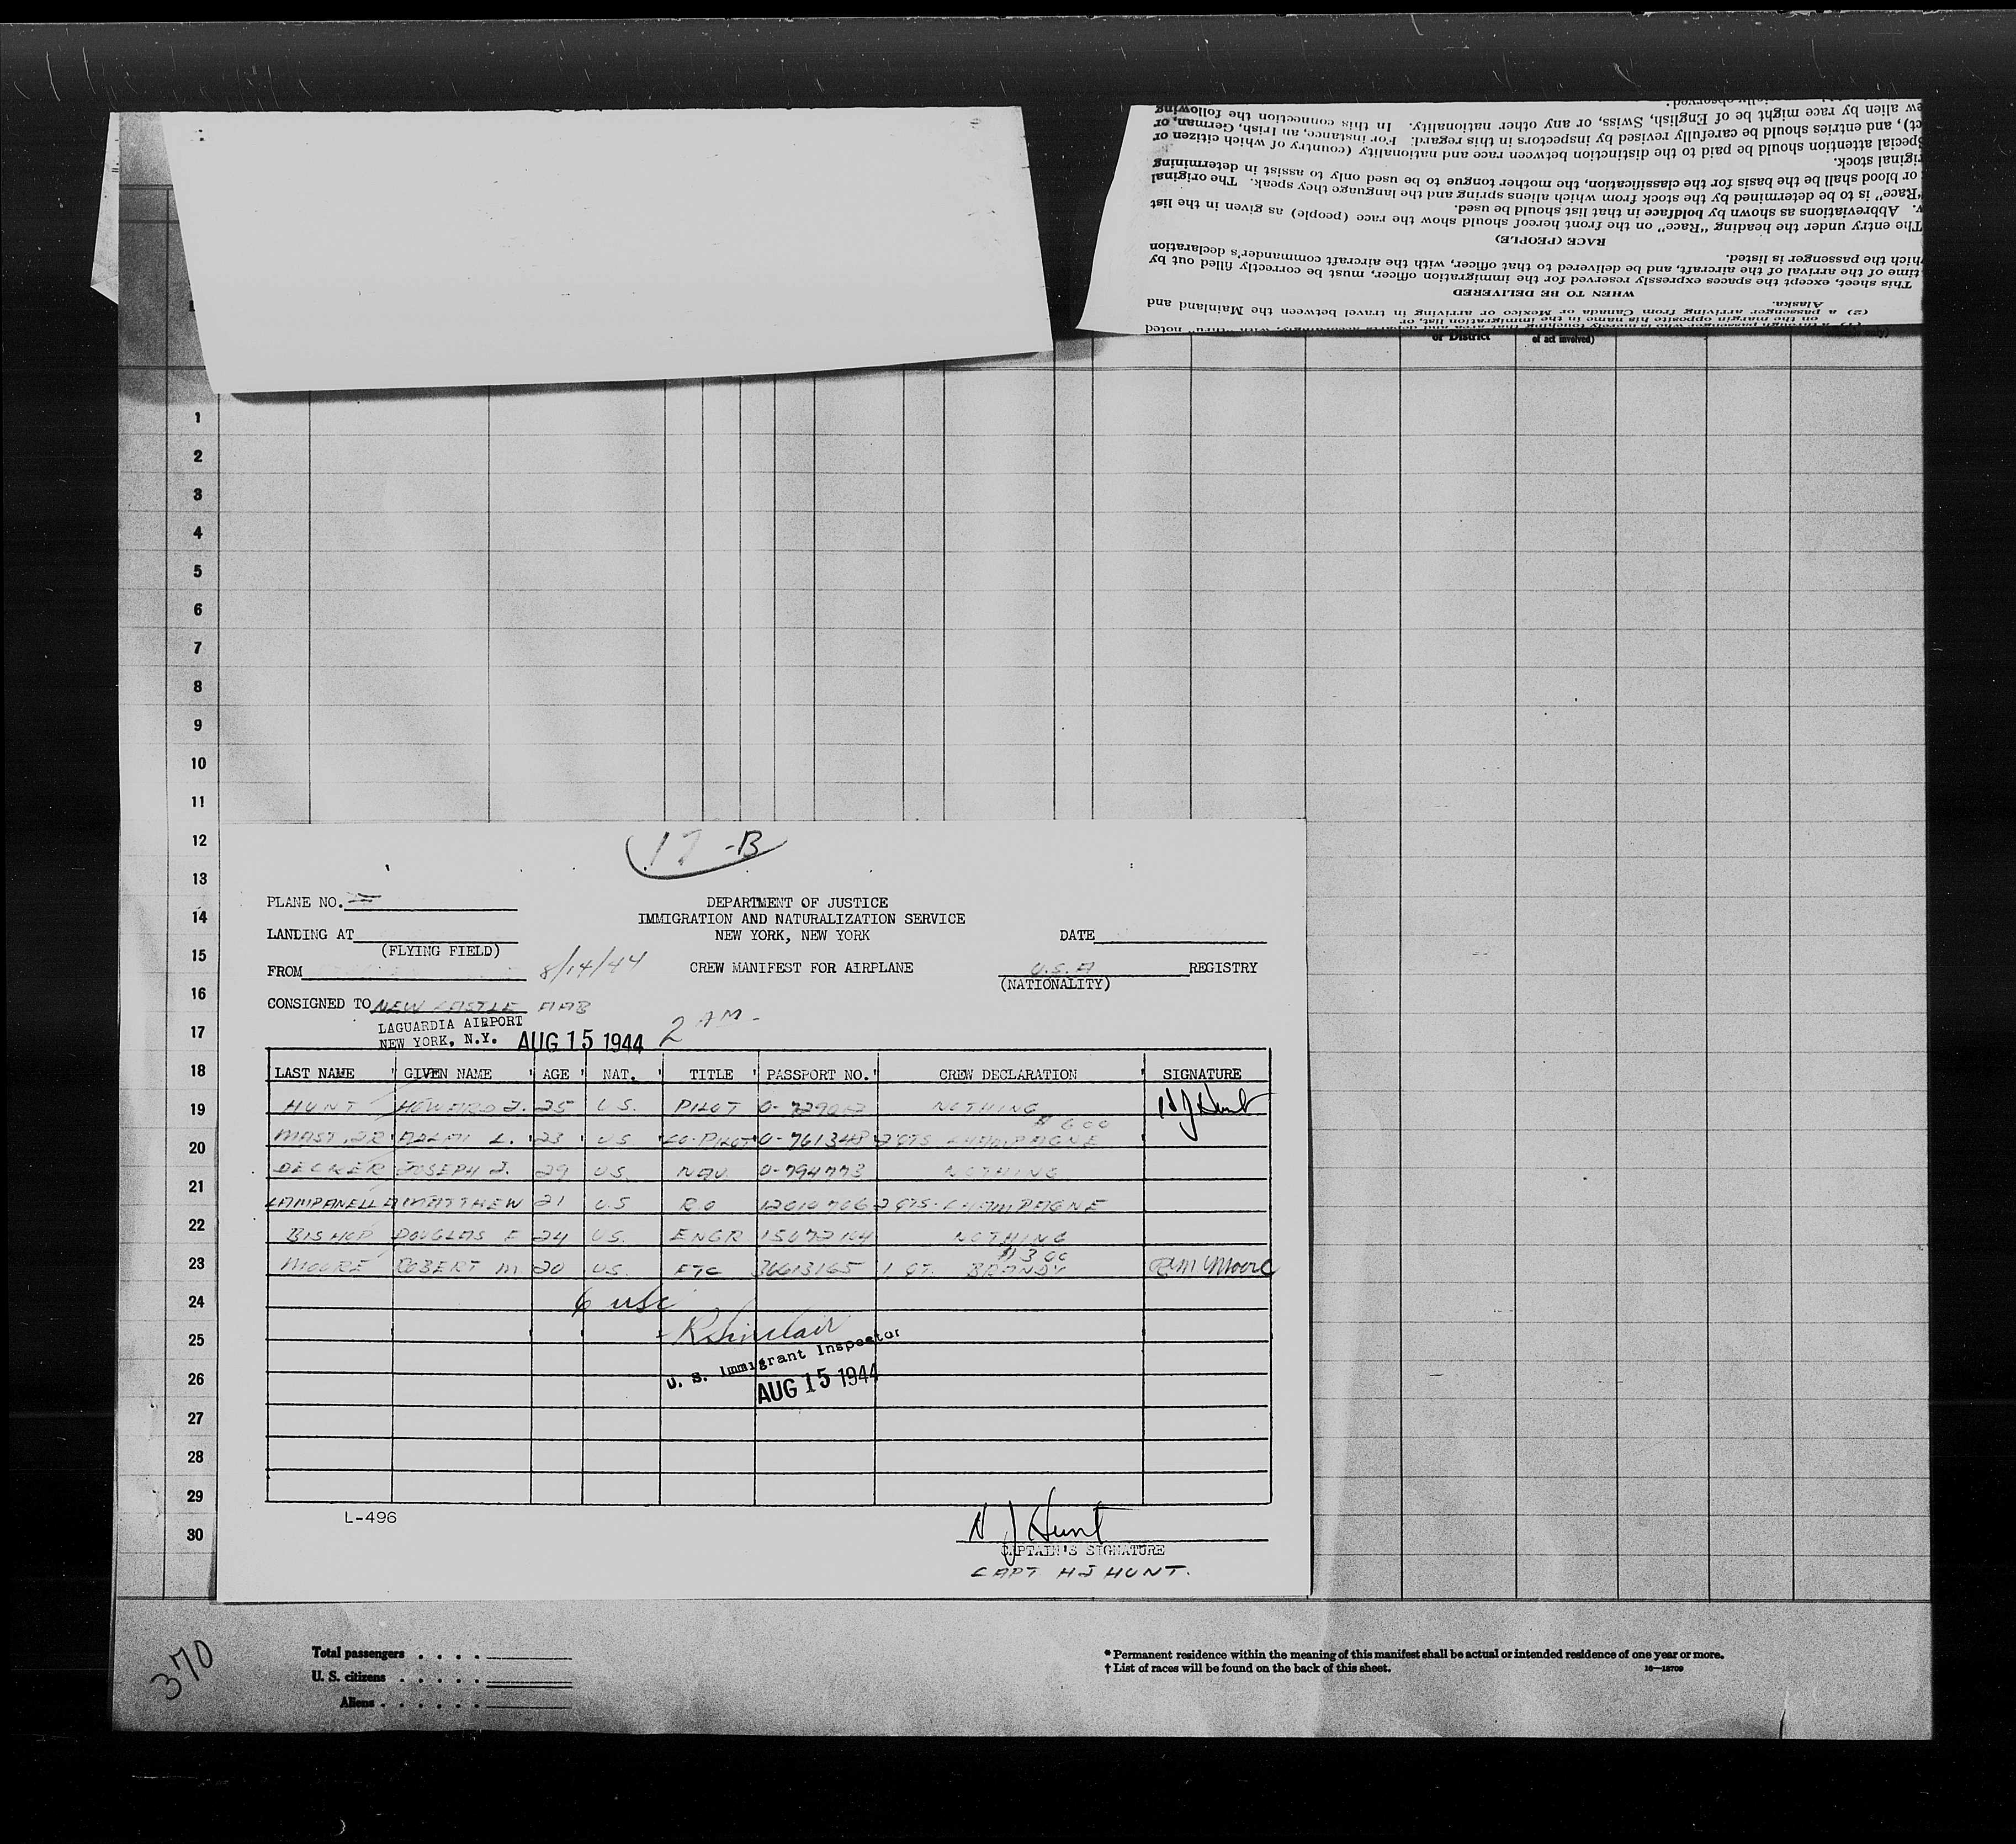 ew alien by race might be of English, Swiss, or any other nationality. In this connection the following
ct), and entries should be carefully revised by inspectors in this regard. For instance, an Irish, German, or
pecial attention should be paid to the distinction between race and nationality (country of which citizen or
riginal stock.
or blood shall be the basis for the classification, the mother tongue to be used only to assist in determining
"Race" is to be determined by the stock from which aliens spring and the language they speak. The original
y. Abbreviations as shown by boldface in that list should be used.
The entry under the heading "Race" on the front hereof should show the race (people) as given in the list
RACE (PEOPLE)
hich the passenger is listed.
time of the arrival of the aircraft, and be delivered to that officer, with the aircraft commander's declaration
This sheet, except the spaces expressly reserved for the immigration officer, must be correctly filled out by
WHEN TO BE DELIVERED
Alaska.
(2) a passenger arriving from Canada or Mexico or arriving in travel between the Mainland and
on the margin opposite his name in the immigration list, or
or District
of act involved)
1
2
3
4
5
6
7
8
9
10
11
12
13
14
15
16
17
18
19
20
21
22
23
24
25
26
27
28
29
30
17-B
PLANE NO.
DEPARTMENT OF JUSTICE
IMMIGRATION AND NATURALIZATION SERVICE
LANDING AT NEW YORK, NEW YORK DATE
(FLYING FIELD)
FROM 8/14/44 CREW MANIFEST FOR AIRPLANE U.S.A REGISTRY
(NATIONALITY)
CONSIGNED TO NEW CASTLE AAB
LAGUARDIA AIRPORT
NEW YORK, N.Y. AUG 15 1944 2 AM-
LAST NAME GIVEN NAME AGE NAT. TITLE PASSPORT NO. CREW DECLARATION SIGNATURE
HUNT HOWARD J. 25 U.S. PILOT NOTHING HJ Hunt
$6.00
MAST, JR L. 23 U.S. CO-PILOT O-761348 2 QTS CHAMPAGNE
DECKER JOSEPH J. 29 U.S. NAV O-794773 NOTHING
CAMPANELLA MATTHEW 21 U.S RO 12010706 2 QTS. CHAMPAGNE
BISHOP DOUGLAS F 24 U.S. ENGR 15072104 NOTHING
$3.00
MOORE ROBERT M. 20 U.S. FTC 36613165 1 QT. BRANDY RM Moore
6 USC
R Sinclair
U. S. Immigrant Inspector
AUG 15 1944
L-496
H J Hunt
CAPTAIN'S SIGNATURE
CAPT HJ HUNT.
370
Total passengers . . . .
U. S. citizens . . . . .
Aliens . . . . . .
* Permanent residence within the meaning of this manifest shall be actual or intended residence of one year or more.
† List of races will be found on the back of this sheet.
16—18709